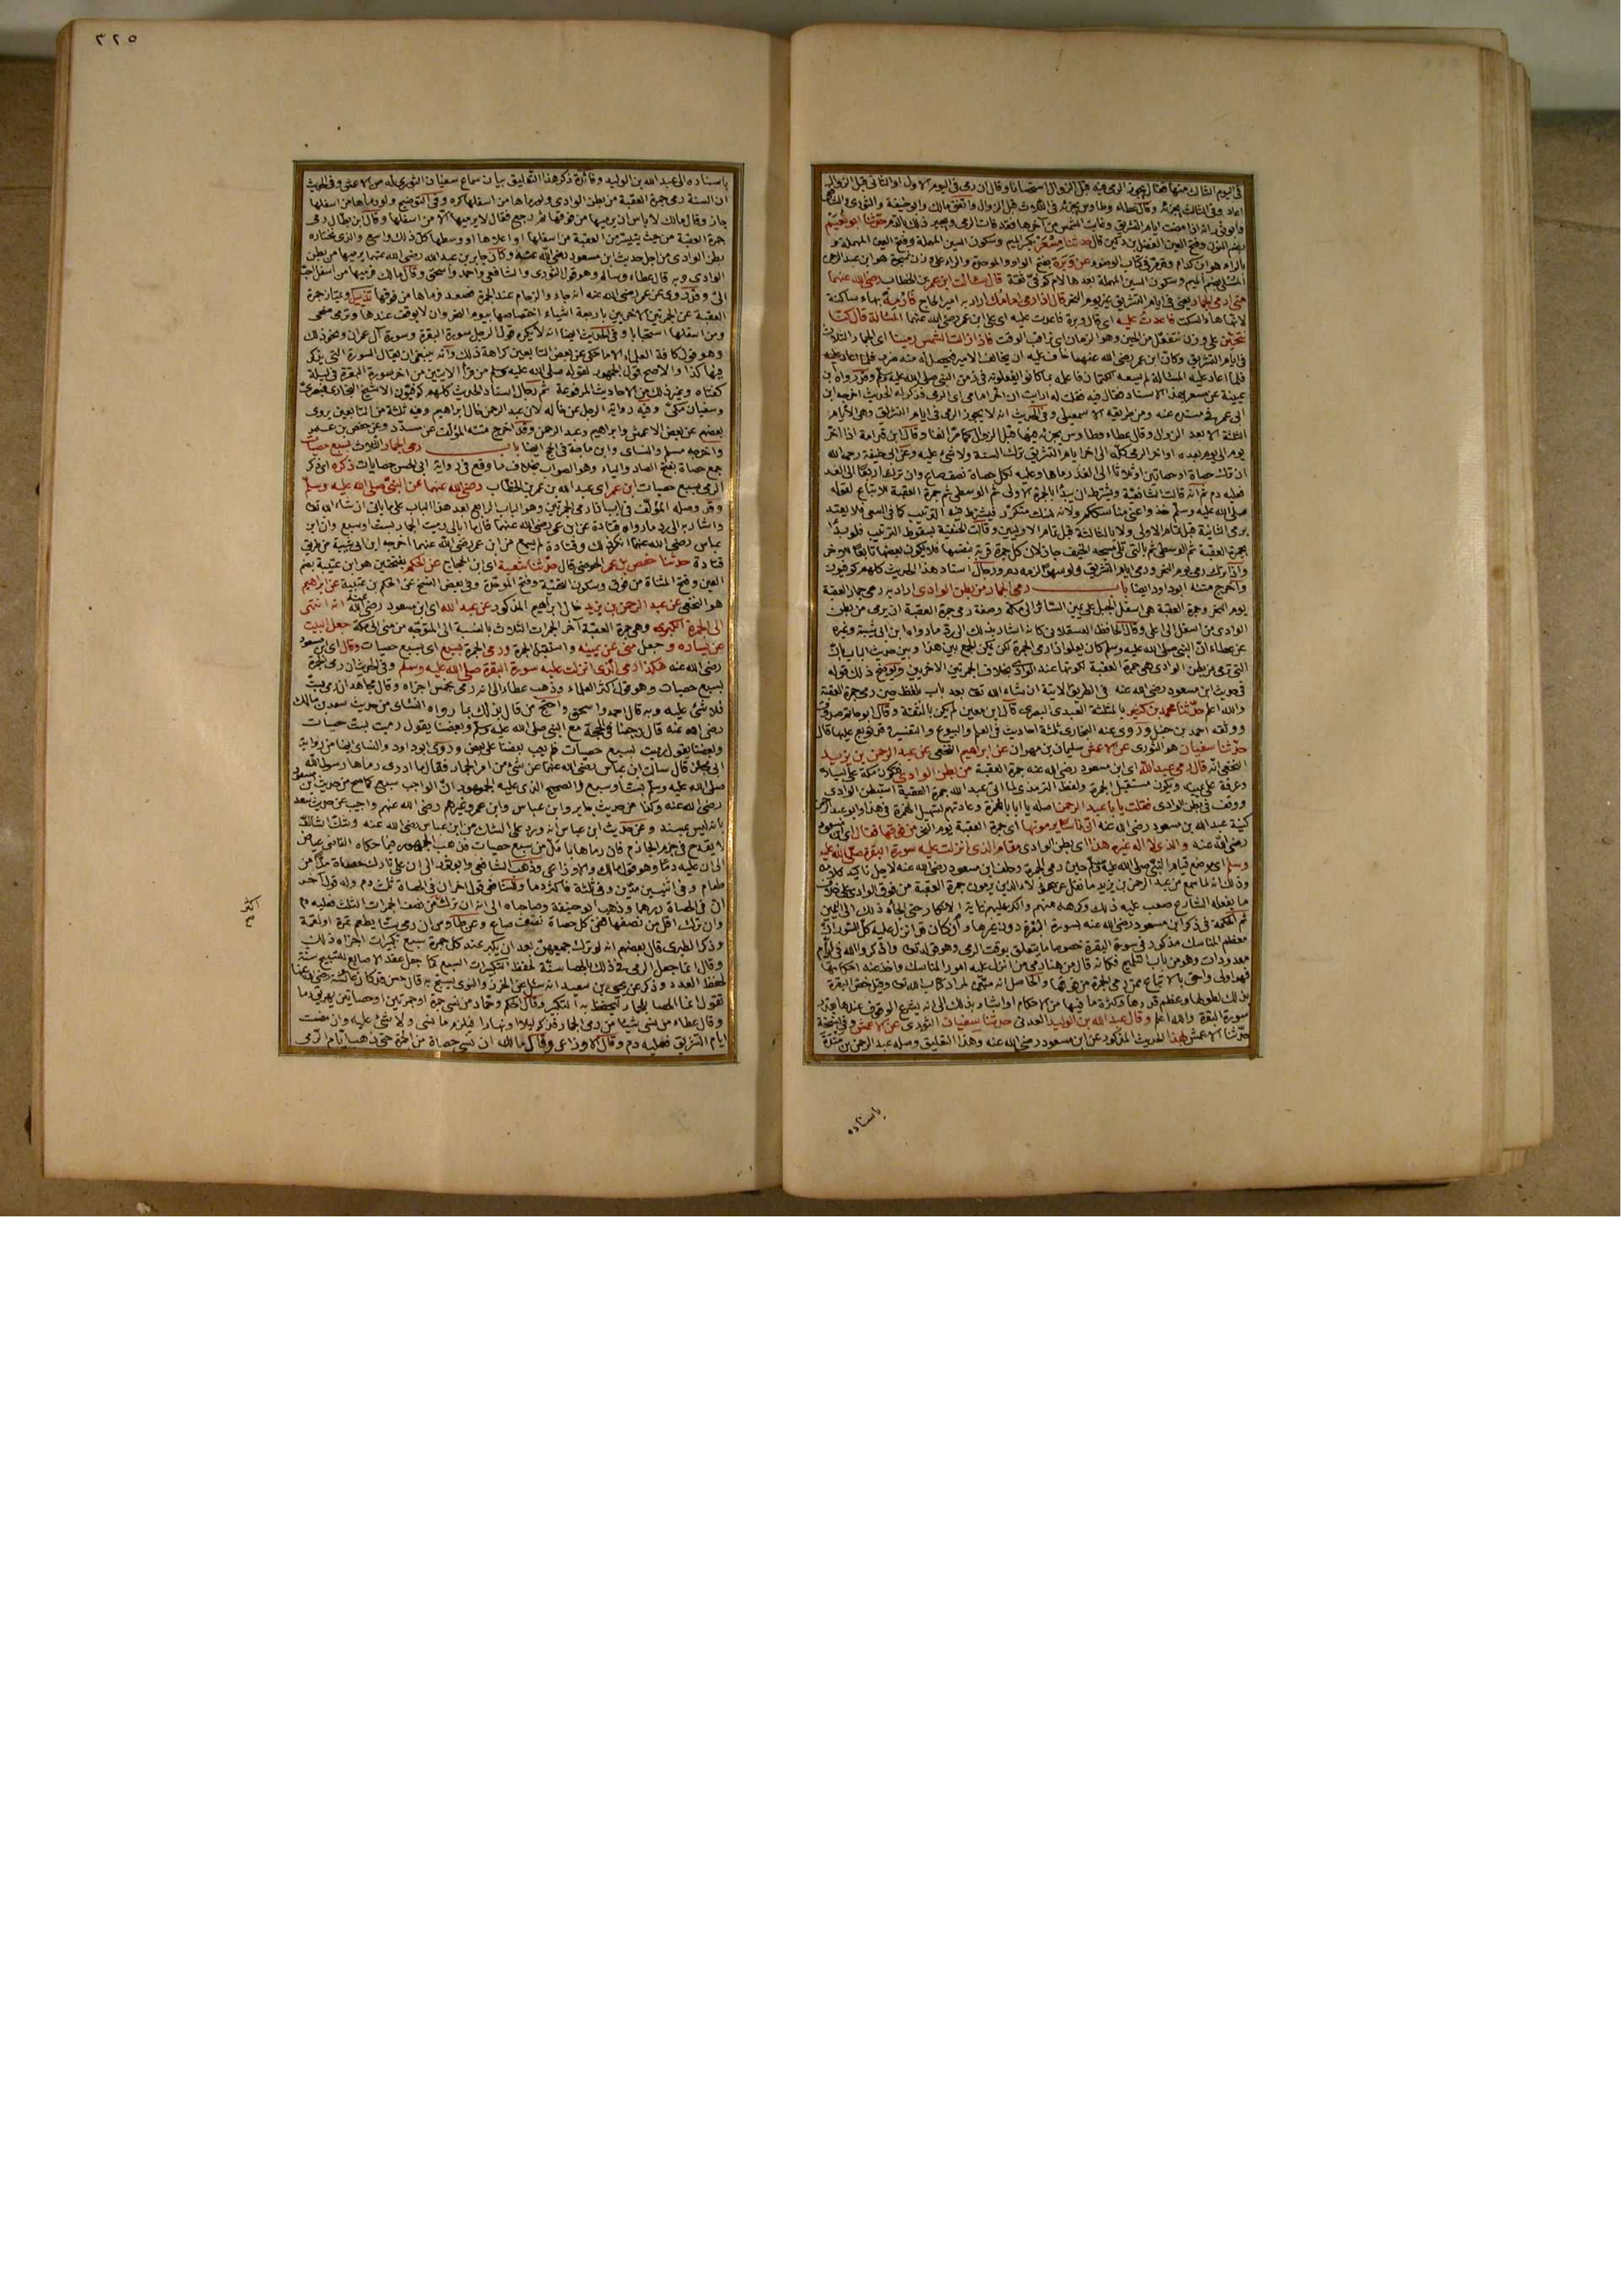 في اليوم الثالث منها فقال يجوز الرمي فيه قبل الزوال استحسانا وقال ان رمى في اليوم الاول او الثاني قبل الزوال
اعاد وفي الثالث يجزئه وقال عطاء وطاوس يجزئه في الثلاث قبل الزوال واتفق مالك وابو حنيفة والثوري والشافعي
وابو ثور انه اذا مضت ايام التشريق وغابت الشمس من آخرها فقد فات الرمي ويجبر ذلك بالدم حدثنا ابو نعيم
بضم النون وفتح العين الفضل بن دكين قال حدثنا مسعر بكسر الميم وسكون السين المهملة وفتح العين المهملة
بالراء هو ابن كدام وقد مر في كتاب الوضوء عن وبرة بفتح الواو والموحدة والراء على وزن شجرة هو ابن عبد الرحمن
المسلي بضم الميم وسكون السين المهملة بعدها لام كوفي ثقة قال سالت ابن عمر بن الخطاب رضي الله عنهما
متى ارمي الجمار يعني في ايام التشريق غير يوم النحر قال اذا رمى امامك اراد به امير الحاج فارمه بهاء ساكنة
لانها هاء السكت فاعدت عليه اي قال وبرة فاعدت عليه اي على ابن عمر رضي الله عنهما المسألة قال كنا
نتحين على وزن نتفعل من الحين وهو الزمان اي نراقب الوقت فاذا زالت الشمس رمينا اي الجمار الثلاث
في ايام التشريق وكان ابن عمر رضي الله عنهما خاف عليه ان يخالف الامير فيحصل له منه ضرر فلما اعاد عليه
فلما اعاد عليه المسألة لم يسعه الكتمان فاعلمه بما كانوا يفعلونه في زمن النبي صلى الله عليه وسلم وقد رواه ابن
عيينة عن مسعر بهذا الاسناد فقال فيه فقلت له ارايت ان اخر امامي اي الرمي فذكر له الحديث اخرجه ابن
ابي عمر في مسنده عنه ومن طريقه الاسمعيلي وفي الحديث انه لا يجوز الرمي في ايام التشريق وهي الايام
الثلثة الا بعد الزوال وقال عطاء وطاوس يجزئه فيها قبل الزوال كما مر آنفا وقال ابن قدامة اذا اخر
يوم الى يوم بعده او اخر الرمي كله الى اخر ايام التشريق ترك السنة ولا شئ عليه وعن ابي حنيفة رحمه الله
ان ترك حصاة او حصاتين او ثلاثا الى الغد رماها وعليه لكل حصاة نصف صاع وان ترك اربعا الى الغد
فعليه دم ثم انه قالت الشافعية ويشترط ان يبدأ بالجمرة الاولى ثم الوسطى ثم جمرة العقبة للاتباع لقوله
صلى الله عليه وسلم خذوا عني مناسككم ولانه نسك متكرر فيشترط فيه الترتيب كما في السعي فلا يعتد
برمي الثانية قبل تمام الاولى ولا بالثالثة قبل تمام الاوليين وقالت الحنفية بسقوط الترتيب فلو بدأ
بجمرة العقبة ثم الوسطى ثم بالتي تلي مسجد الخيف جاز لان كل جمرة قربة بنفسها فلا يكون بعضها تابعا للاخر
واذا ترك رمي يوم النحر ورمي ايام التشريق ولو سهوا لزمه دم ورجال اسناد هذا الحديث كلهم كوفيون
واخرج متنه ابو داود ايضا باب رمي الجمار من بطن الوادي اراد به رمي جمار العقبة
يوم النحر وجمرة العقبة هي اسفل الجبل على يمين السائر الى مكة وصفة رمي جمرة العقبة ان يرمى من بطن
الوادي من اسفل الى اعلى وقال الحافظ العسقلاني كانه اشار بذلك الى رد ما رواه ابن ابي شيبة وغيره
عن عطاء ان النبي صلى الله عليه وسلم كان يعلو اذا رمى الجمرة لكن يمكن الجمع بين هذا وبين حديث الباب بان
التي ترمى من بطن الوادي هي جمرة العقبة لكونها عند الوادي بخلاف الجمرتين الاخريين ويوضح ذلك قوله
في حديث ابن مسعود رضي الله عنه في الطريق الآتية ان شاء الله تعالى بعد باب بلفظ حين رمى جمرة العقبة
والله اعلم حدثنا محمد بن كثير بالمثلثة العبدي البصري قال ابن معين لم يكن بالثقة وقال ابو حاتم صدوق
ووثقه احمد بن حنبل وروى عنه البخاري ثلثة احاديث في العلم والبيوع والتفسير قد توبع عليها قال
حدثنا سفيان هو الثوري عن الاعمش سليمان بن مهران عن ابراهيم النخعي عن عبد الرحمن بن يزيد
النخعي انه قال رمى عبد الله اي ابن مسعود رضي الله عنه جمرة العقبة من بطن الوادي فتكون مكة على يساره
وعرفة على يمينه ويكون مستقبل الجمرة ولفظ الترمذي لما اتى عبد الله جمرة العقبة استبطن الوادي
ووقف في بطن الوادي فقلت يا با عبد الرحمن اصله يا ابا بالهمزة وعادتهم تسهيل الهمزة في هذا وابو عبد الرحمن
كنية عبد الله بن مسعود رضي الله عنه ان ناسا يرمونها اي جمرة العقبة يوم النحر من فوقها فقال اي ابن مسعود
رضي الله عنه والذي لا اله غيره هذا اي بطن الوادي مقام الذي انزلت عليه سورة البقرة صلى الله عليه
وسلم اي موضع قيام النبي صلى الله عليه وسلم حين رمى الجمرة وحلف ابن مسعود رضي الله عنه لاجل تاكيد كلامه
وذلك انه لما سمع من عبد الرحمن بن يزيد ما نقل عن هؤلاء الذين يرمون جمرة العقبة من فوق الوادي على خلاف
ما يفعله الشارع صعب عليه ذلك وكرهه منهم وانكر عليهم غاية الانكار حتى الجأه ذلك الى اليمين
ثم الحكمة في ذكر ابن مسعود رضي الله عنه لسورة البقرة دون غيرها وان كان قد انزل عليه كل السور ان
معظم المناسك مذكور في سورة البقرة خصوصا ما يتعلق بوقت الرمي وهو قوله تعالى واذكروا الله في ايام
معدودات وهو من باب التلميح فكانه قال من هنا رمى من انزل عليه امور المناسك واخذ عنه احكامها
فهو اولى واحق بالاتباع ممن رمى الجمرة من فوقها والحاصل انه
بذلك لطولها وعظم قدرها وكثرة ما فيها من الاحكام او اشار بذلك الى انه يشرع الوقوف عندها بقدر
سورة البقرة والله اعلم وقال عبد الله بن الوليد العدني حدثنا سفيان الثوري عن الاعمش وفي نسخة
حدثنا الاعمش بهذا الحديث المذكور عن ابن مسعود رضي الله عنه وهذا التعليق وصله عبد الرحمن بن مندة
باسناده
٣٢٥
باسناده الى عبد الله بن الوليد وفائدة ذكر هذا التعليق بيان سماع سفيان الثوري له من الاعمش وفي الحديث
ان السنة رمي جمرة العقبة من بطن الوادي ولو رماها من اسفلها كره وفي التوضيح ولو رماها من اسفلها
جاز وقال مالك لا باس ان يرميها من فوقها ثم رجع فقال لا يرميها الا من اسفلها وقال ابن بطال رمي
جمرة العقبة من حيث يتيسر من العقبة من اسفلها او اعلاها او وسطها كل ذلك واسع والذي يختاره
بطن الوادي من اجل حديث ابن مسعود رضي الله عنه وكان جابر بن عبد الله رضي الله عنهما يرميها من بطن
الوادي وبه قال عطاء وسالم وهو قول الثوري والشافعي واحمد واسحق وقال مالك فرميها من اسفل احب
الي وقد روي عن عمر رضي الله عنه انه جاء والزحام عند الجمرة فصعد فرماها من فوقها تذييل ويمتاز جمرة
العقبة عن الجمرتين الاخريين باربعة اشياء اختصاصها بيوم النحر وان لا يوقف عندها وترمى ضحى
ومن اسفلها استحبابا وفي الحديث ايضا انه لا يكره قول الرجل سورة البقرة وسورة آل عمران ونحو ذلك
وهو قول كافة العلماء الا ما حكي عن بعض التابعين كراهة ذلك وانه ينبغي ان يقال السورة التي يذكر
فيها كذا والاصح قول الجمهور لقوله صلى الله عليه وسلم من قرأ الآيتين من اخر سورة البقرة في ليلة
كفتاه وغير ذلك من الاحاديث المرفوعة ثم رجال اسناد الحديث كلهم كوفيون الا شيخ البخاري فبصري
وسفيان مكي وفيه رواية الرجل عن خاله لان عبد الرحمن خال ابراهيم وفيه ثلثة من التابعين يروي
بعضهم عن بعض الاعمش وابراهيم وعبد الرحمن وقد اخرج متنه المؤلف عن مسدد وعن حفص بن عمر
واخرجه مسلم والنسائي وابن ماجة في الحج ايضا باب رمي الجمار الثلاث بسبع حصيات
جمع حصاة بفتح الصاد والياء وهو الصواب بخلاف ما وقع في رواية ابي الحسن حصايات ذكره اي ذكر
الرمي بسبع حصيات ابن عمر اي عبد الله بن عمر بن الخطاب رضي الله عنهما عن النبي صلى الله عليه وسلم
وقد وصله المؤلف في باب اذا رمى الجمرتين وهو الباب الرابع بعد هذا الباب على ما ياتي ان شاء الله تعالى
واشار به الى رد ما رواه قتادة عن ابن عمر رضي الله عنهما قال ما ابالي رميت الجمار بست او سبع وان ابن
عباس رضي الله عنهما انكر ذلك وقتادة لم يسمع من ابن عمر رضي الله عنهما اخرجه ابن ابي شيبة من طريق
قتادة حدثنا حفص بن عمر الحوضي قال حدثنا شعبة اي ابن الحجاج عن الحكم بفتحتين هو ابن عتيبة بضم
العين وفتح المثناة من فوق وسكون التحتية وفتح الموحدة وفي بعض النسخ عن الحكم بن عتيبة عن ابراهيم
هو النخعي عن عبد الرحمن بن يزيد خال ابراهيم المذكور عن عبد الله اي ابن مسعود رضي الله عنه انه انتهى
الى الجمرة الكبرى وهي جمرة العقبة آخر الجمرات الثلاث بالنسبة الى المتوجه من منى الى مكة جعل البيت
عن يساره وجعل منى عن يمينه واستقبل الجمرة ورمى الجمرة بسبع اي بسبع حصيات وقال اي ابن مسعود
رضي الله عنه هكذا رمى الذي انزلت عليه سورة البقرة صلى الله عليه وسلم وفي الحديث ان رمي الجمرة
بسبع حصيات وهو قول اكثر العلماء وذهب عطاء الى انه رمى بخمس اجزاه وقال مجاهد ان رمى بست
فلا شئ عليه وبه قال احمد واسحق واحتج من قال بذلك بما رواه النسائي من حديث سعد بن مالك
رضي الله عنه قال رجعنا في الحجة مع النبي صلى الله عليه وسلم وبعضنا يقول رميت بست حصيات
وبعضنا يقول رميت بسبع حصيات فلم يعب بعضنا على بعض وروى ابو داود والنسائي ايضا من رواية
ابي مجلز قال سالت ابن عباس رضي الله عنهما عن شئ من امر الجمار فقال ما ادري رماها رسول الله
صلى الله عليه وسلم بست او سبع والصحيح الذي عليه الجمهور ان الواجب سبع كما صح من حديث ابن مسعود
رضي الله عنه وكذا من حديث جابر وابن عباس وابن عمر وغيرهم رضي الله عنهم واجيب عن حديث سعد
بانه ليس بمسند وعن حديث ابن عباس انه ورد على الشك من ابن عباس رضي الله عنه وشك الشاك
لا يقدح في جزم الجازم فان رماها باقل من سبع حصيات فذهب الجمهور فيما حكاه القاضي عياض
الى ان عليه دما وهو قول مالك والاوزاعي وذهب الشافعي وابو ثور الى ان على تارك حصاة مدا من
طعام وفي اثنتين مدين وفي ثلثة فاكثر دما وللشافعي قول اخر ان في الحصاة ثلث دم وله قول آخر
ان في الحصاة درهما وذهب ابو حنيفة وصاحباه الى انه ان ترك اكثر من نصف الجمرات الثلث فعليه دم
وان ترك اقل من نصفها ففي كل حصاة نصف صاع وعن طاوس ان رمى ستا يطعم تمرة او لقمة
وذكر الطبري قال بعضهم انه لو ترك جميعهن بعد ان يكبر عند كل جمرة سبع تكبيرات اجزاه ذلك
وقال انما جعل الرمي في ذلك بالحصا سببا لحفظ التكبيرات السبع كما جعل عقد الاصابع بالتسبيح سببا
لحفظ العدد وذكر عن يحيى بن سعيد انه سئل عن الخرز والنوى يسبح به قال حسن قد كانت عائشة رضي الله عنها
تقول انما الحصا للجمار ليحفظ به التكبير وقال الحكم وحماد من نسي جمرة او جمرتين او حصاتين يهريق دما
وقال عطاء من نسي شيئا من رمي الجمار فذكر ليلا او نهارا فليرم ما نسي ولا شئ عليه وان مضت
ايام التشريق فعليه دم وقال الاوزاعي وقال مالك ان نسي حصاة من الجمرة حتى ذهب ايام الرمي
اكثر